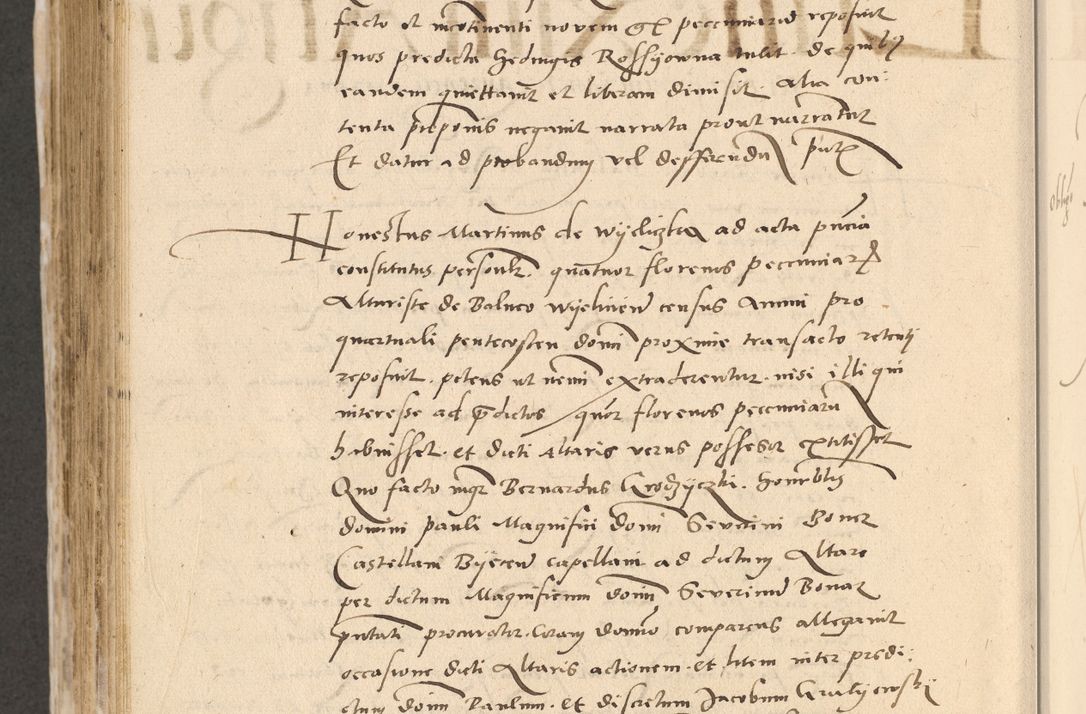 facto et incontinenti novem gr pecuniarum reposuit
quos predicta Hedvigis Rossyowna tulit. de quibus
eandem quiettavit et liberam dimisit. Alia con:
tenta proponis negavit narrata prout narrantur
Et datur ad probandum vel defferendum
Honestus Martinus de Wyeliczka ad acta pñcia
constitutus personlr. quatuor florenos pecuniar
Altariste de Balneo Wyelicien census Annui pro
quartuali pentecosten domi proxime transacto retenti
reposuit. petens ut nemi extraderentur. nisi illi qui
interesse ad predictos quor florenos pecuniaru
habuisset. et dicti Altaris verus possesor extitisset
Quo facto mgr Bernardus Grodzyczki. Honrblis
domini Pauli Magnifici domi Severini Boner
Castellani Byecen capellani ad dictum Altare
per dictum Magnificum domi Severinum Bonar
pntati procurator. Coram domino comparens allegavit
occasione dicti Altaris actionem. et litem inter predi:
ctum domi Paulum. et discretum Jacobum